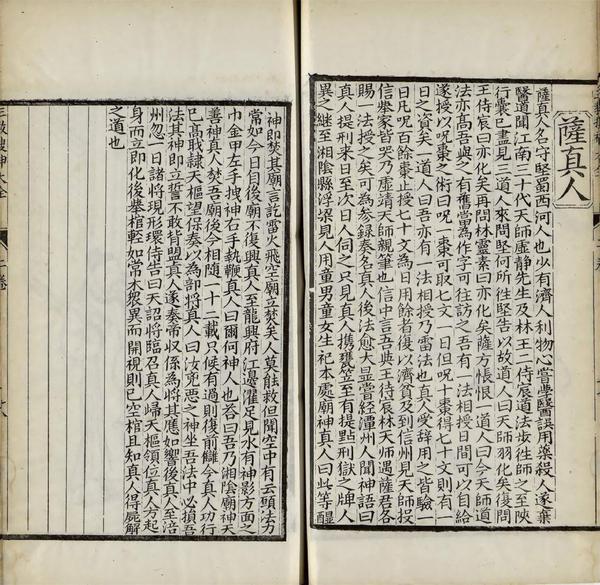 薩真人
薩真人名守堅蜀西河人也少有濟人利物心嘗學醫誤用藥殺人遂棄
醫道聞江南三十代天師虛靜先生及林王二侍宸道法步往師之至陝
行囊已盡見三道人來問堅何所徃堅告以故道人曰天師羽化矣復問
王侍宸曰亦化矣再問林靈素曰亦化矣薩方悵恨一道人曰今天師道
法亦高吾與之有舊當為作字可往訪之吾有一法相授日間可以自給
遂授以呪棗之術曰呪一棗可取七文一日但呪十棗得七十文則有一
日之資矣一道人曰吾亦有一法相授乃雷法也真人受辭用之皆驗一
日凡呪百餘棗止授七十文為日用餘者復以濟貧及到信州見天師投
信舉家皆哭乃虛靖天師親筆也信中言吾與王侍宸林天師遇薩君各
賜一法授之矣可為參録奏名真人後法愈大显嘗經潭州人聞神語曰
真人提刑来日至次日人伺之只見真人携甕笠至有提點刑獄之牌人
異之継至湘陰縣浮梁見人用童男童女生祀本處廟神真人曰此等醒
神即焚其廟言訖雷火飛空廟立焚矣人莫能救但聞空中有云頭法力
常如今日自後廟不復興真人至龍興府江邊濯足見水有神影方面之
巾金甲左手拽袖右手執鞭真人曰爾何神也荅曰吾乃湘陰廟神天
善神真人焚吾廟後今相隨一十二載只候有過則復前讎今真人功行
已高職隸天樞望保奏以為部將真人曰汝兇惡之神坐吾法中必損吾
法其神即立誓不敢背盟真人遂奏帝収係為將其應如響後真人至涪
州忽一日諸將現形環侍告曰天詔將臨召真人歸天樞領位真人方起
身而立即化後舉棺輕如常木衆異而開視則已空棺且知真人得屍解
之道也
三教搜神大全 二卷